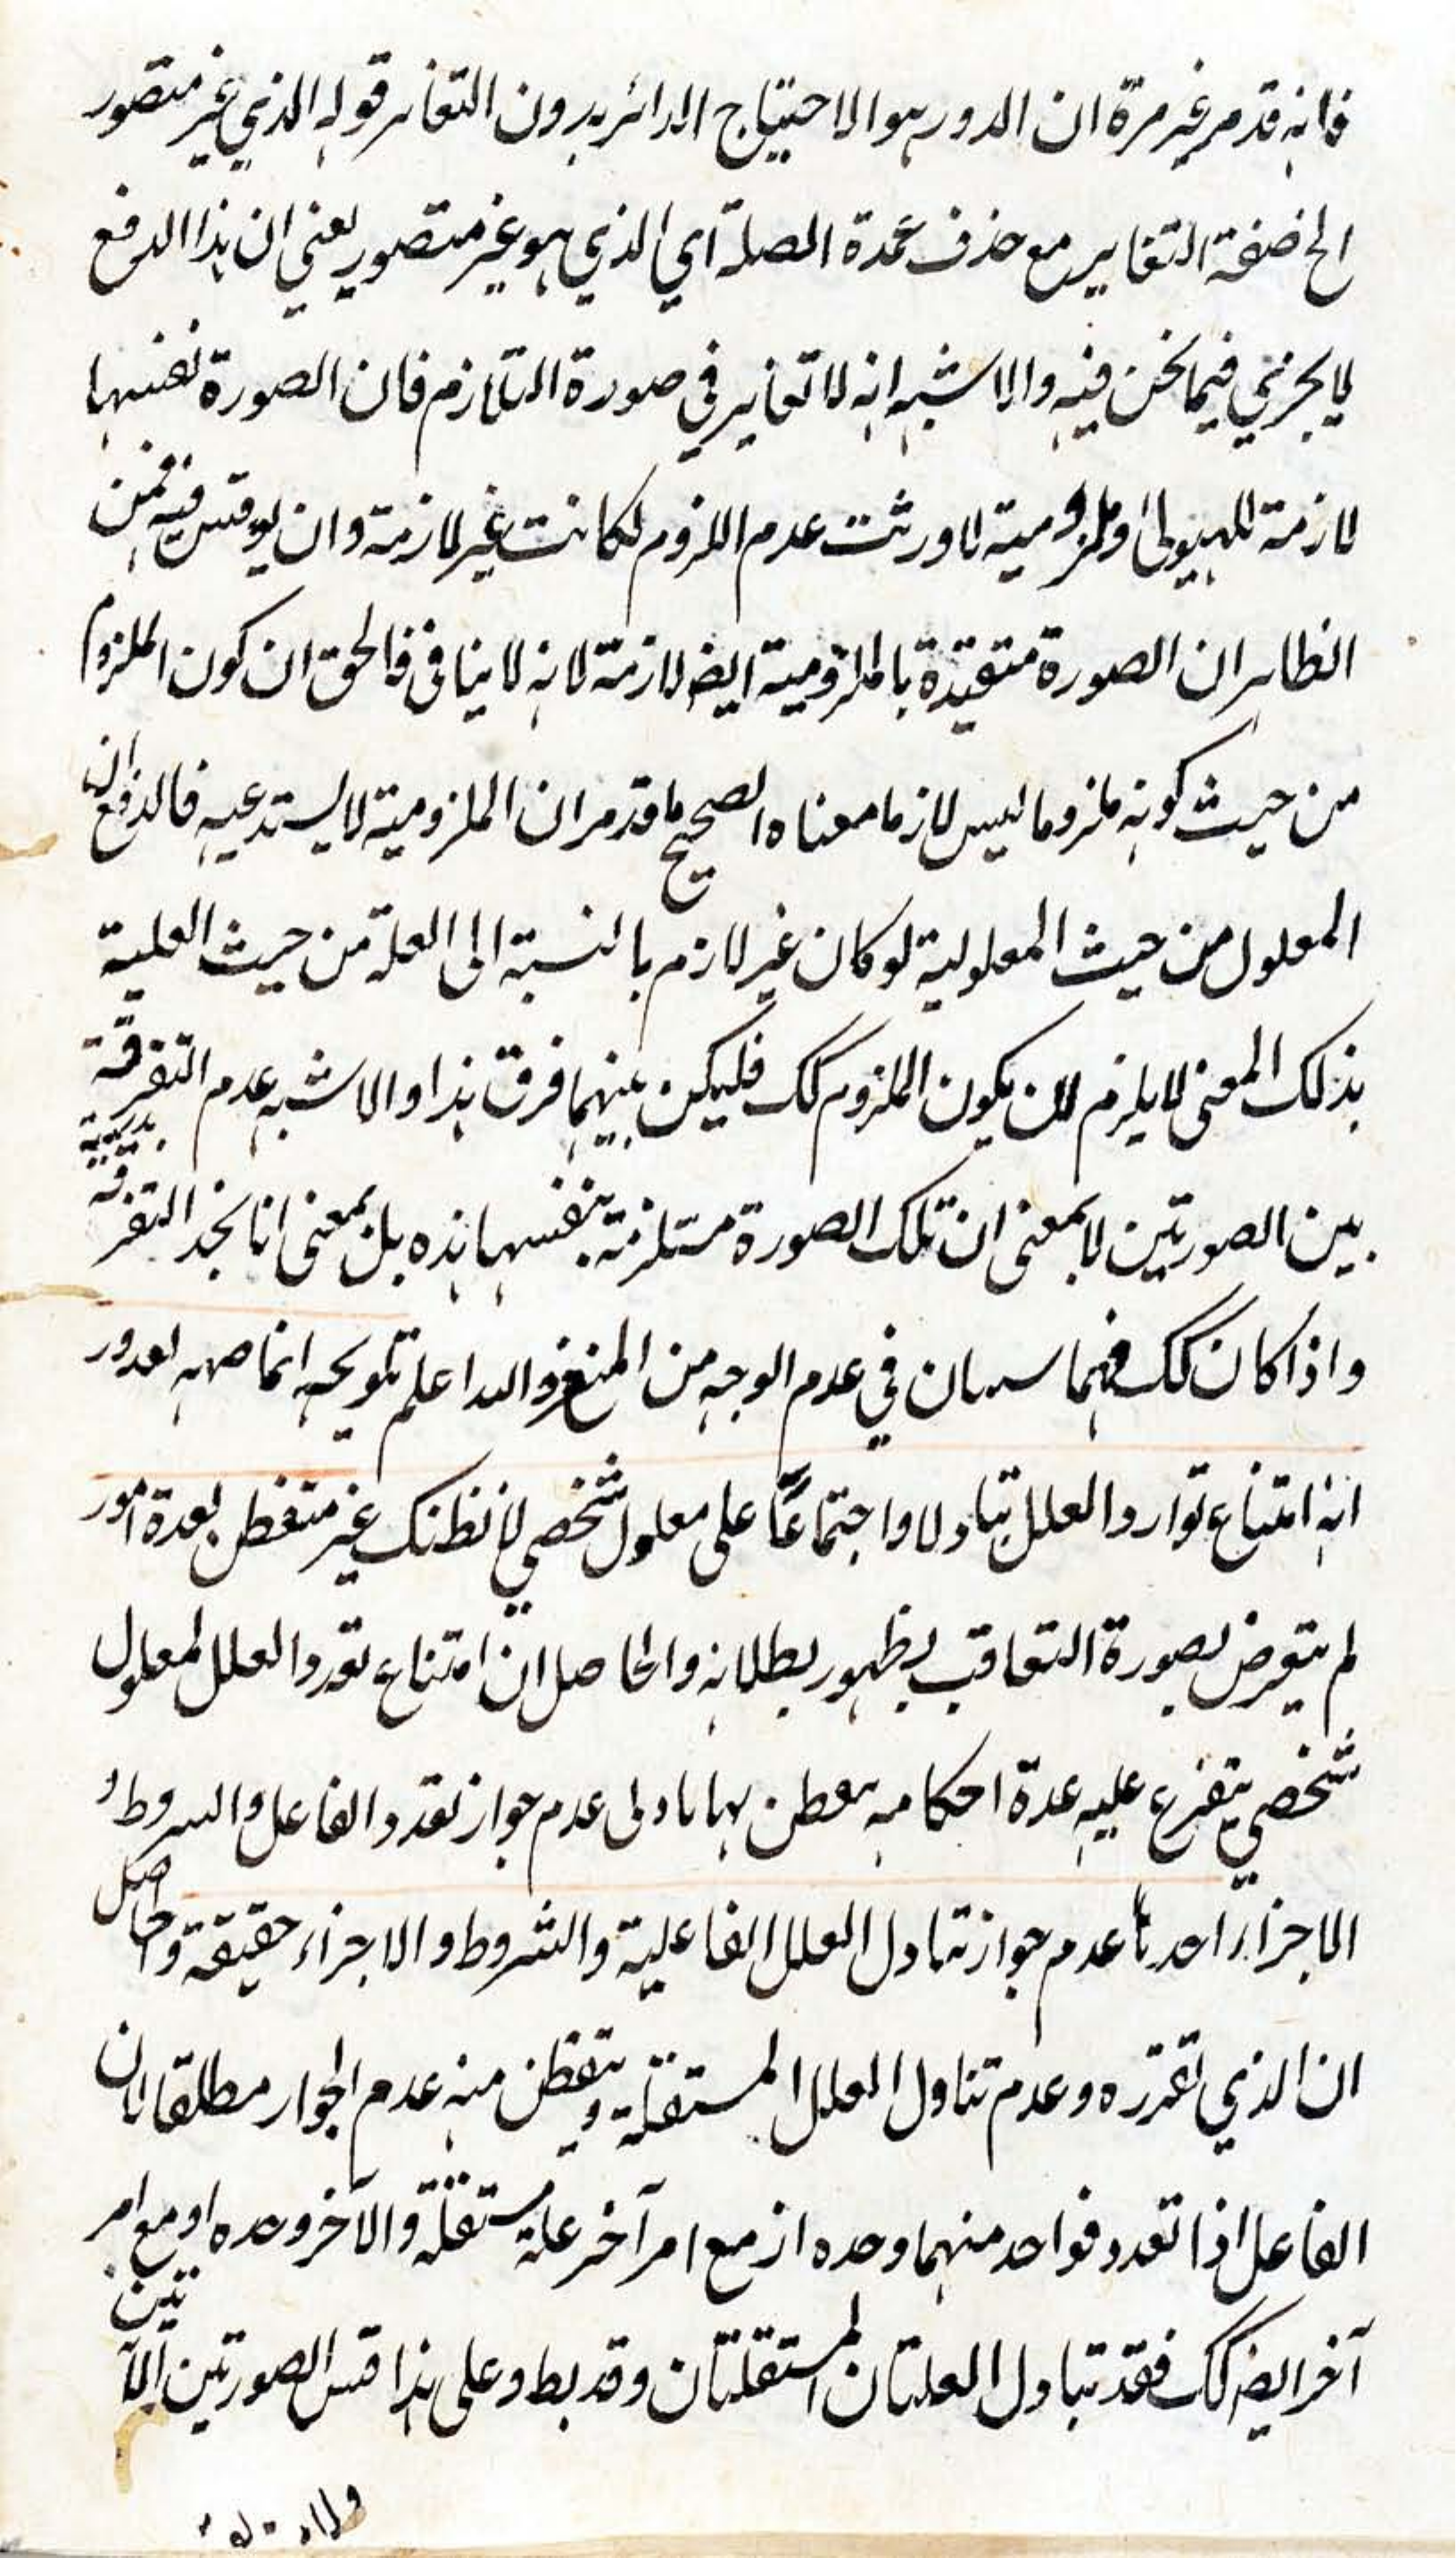 فانه قد مر غير مرة ان الدور هو الاحتياج الدائر بدون التغاير قوله الذي غير متصور
الخ صفة التغاير مع حذف عمدة الصلة اي الذي هو غير متصور يعني ان هذا الدفع
لا يجزي فيما نحن فيه والاشبه انه لا تغاير في صورة التلازم فان الصورة نفسها
لازمة للهيولى وملزومية لاورثت عدم اللزوم لكانت غير لازمة وان يوقش فيه فمن
الظاهر ان الصورة متقيدة بالملزومية ايضا لازمة لانه لا ينافي فالحق ان كون الملزوم
من حيث كونه ملزوما ليس لازما معناه الصحيح ما قد مر ان الملزومية لا يستدعيه فالدفع ان
المعلول من حيث المعلولية لو كان غير لازم بالنسبة الى العلة من حيث العلية
بذلك المعنى لا يلزم لان يكون الملزوم كك فليكن بينهما فرق هذا والاشبه عدم التفرقة
بين الصورتين لا بمعنى ان تلك الصورة مستلزمة بنفسها هذه بل بمعنى انا نجد التفرقة
واذا كان كك فهما سيان في عدم الوجه من المنع والله اعلم تلويحه انما صه لعدور
انه امتناع توارد العلل تبادلا واجتماعا على معلول شخصي لا نظنك غير متفطن لعدة امور
لم يتعرض بصورة التعاقب بظهور بطلانه والحاصل ان امتناع تعدد العلل لمعلول
شخصي يتفرع عليه عدة احكام به تفطن بها بادنى عدم جواز تعدد الفاعل والشروط و
الاجزاء احدها عدم جواز تبادل العلل الفاعلية والشروط والاجزاء حقيقة وحاصل
ان الذي تقرره وعدم تناول العلل المستقلة ويتفطن منه عدم الجواز مطلقا بان
الفاعل اذا تعدد فواحد منهما وحده از مع امر آخر علة مستقلة والآخر وحده او مع امر
آخر ايضا كك فقد تبادل العلتان المستقلتان وقد بط وعلى هذا قس الصورتين الآتين